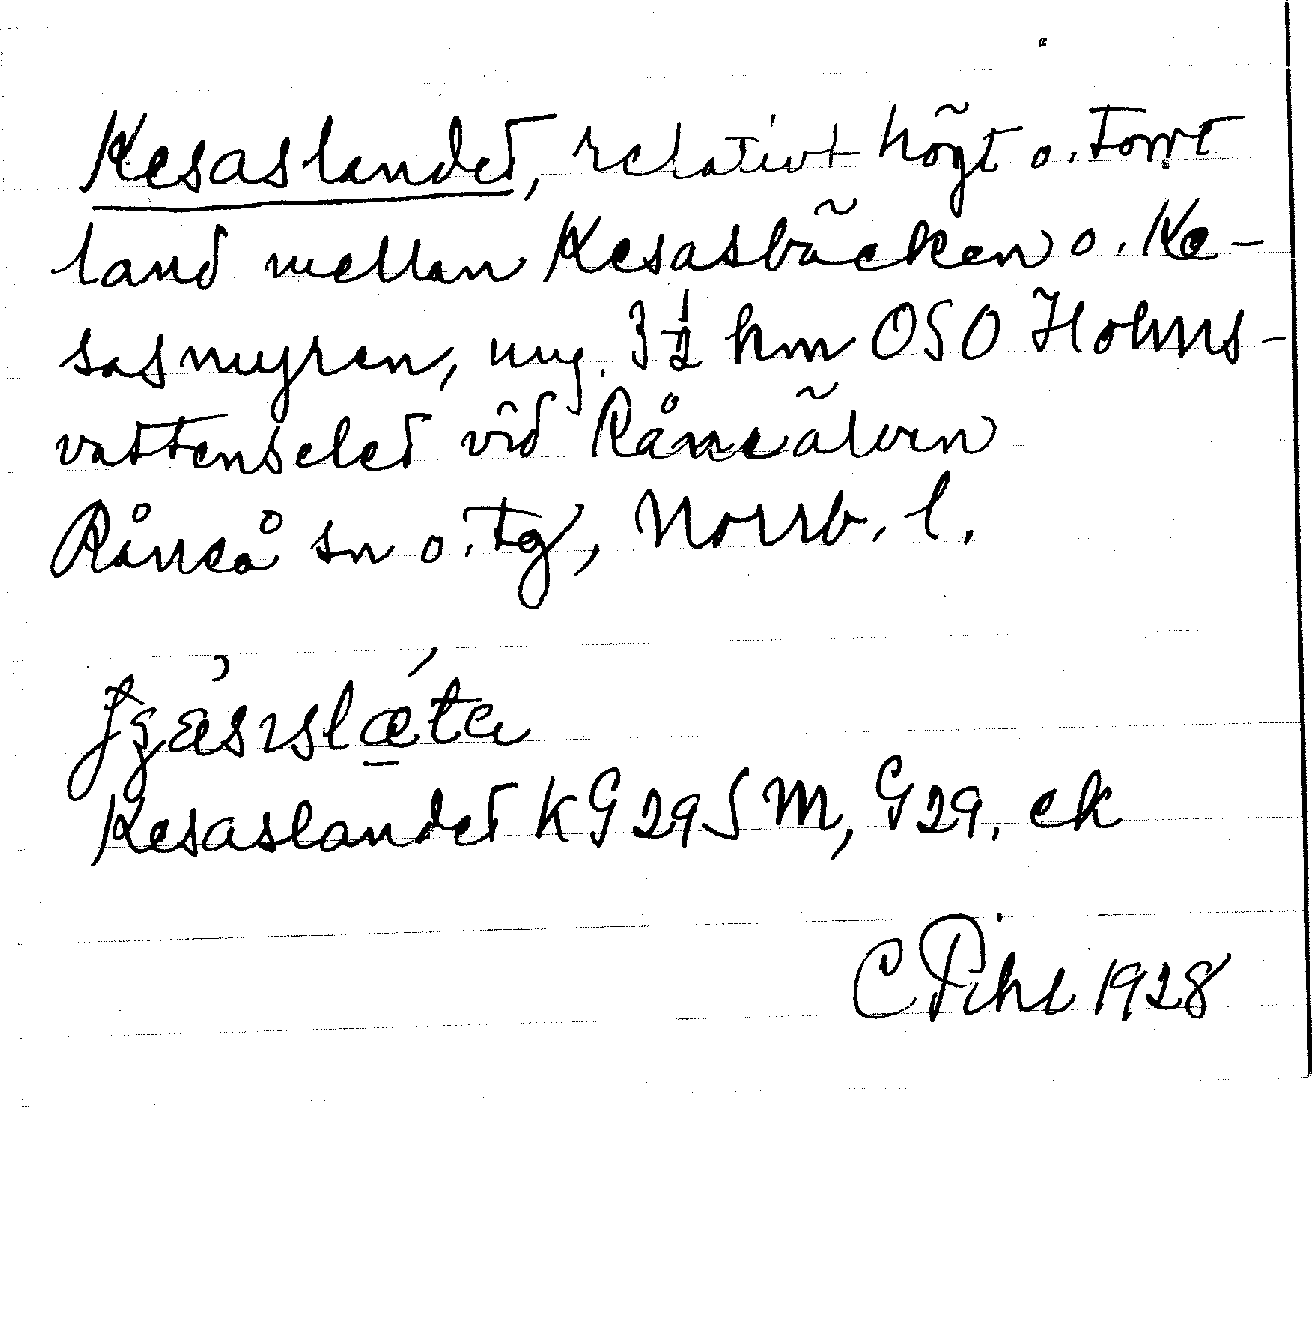 Kesaslandet, relativt högt o. torrt
land mellan Kesasbäcken o. Ke-
sasmyren, ung. 3½ km OSO Holms-
vattenselet vid Råneälven
Råneå sn o. tg, Norrb. l.
Kesaslandet KG 29 S M, G 29. ek
C Pihl 1928